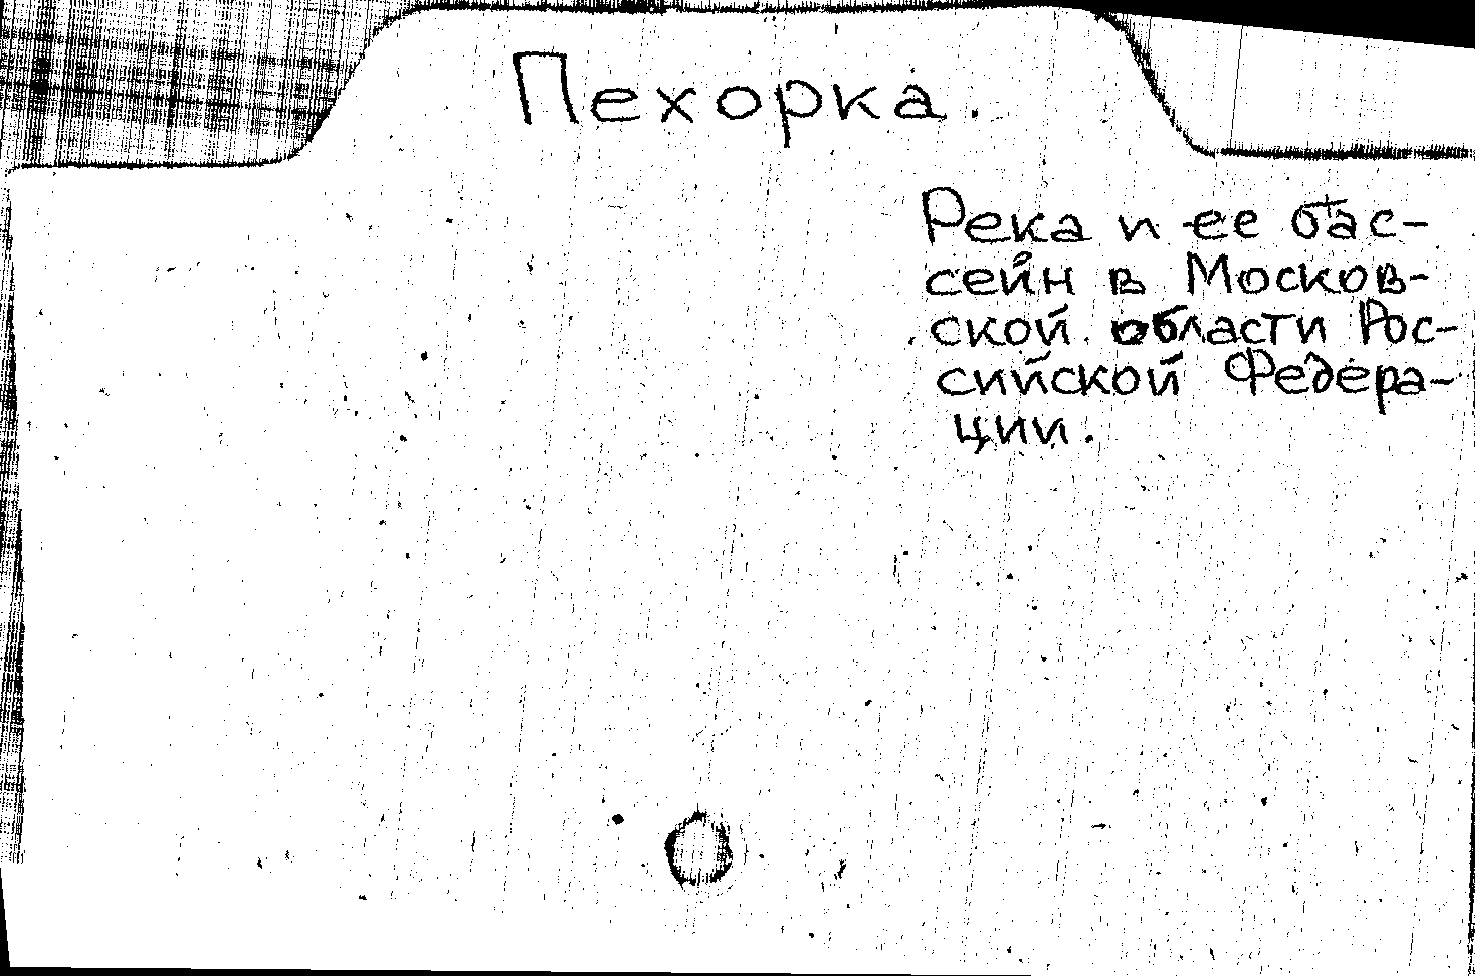 Пехорка.
Река и ее бас-
сейн в Москов-
ской области Рос-
сийской Федера-
ции.